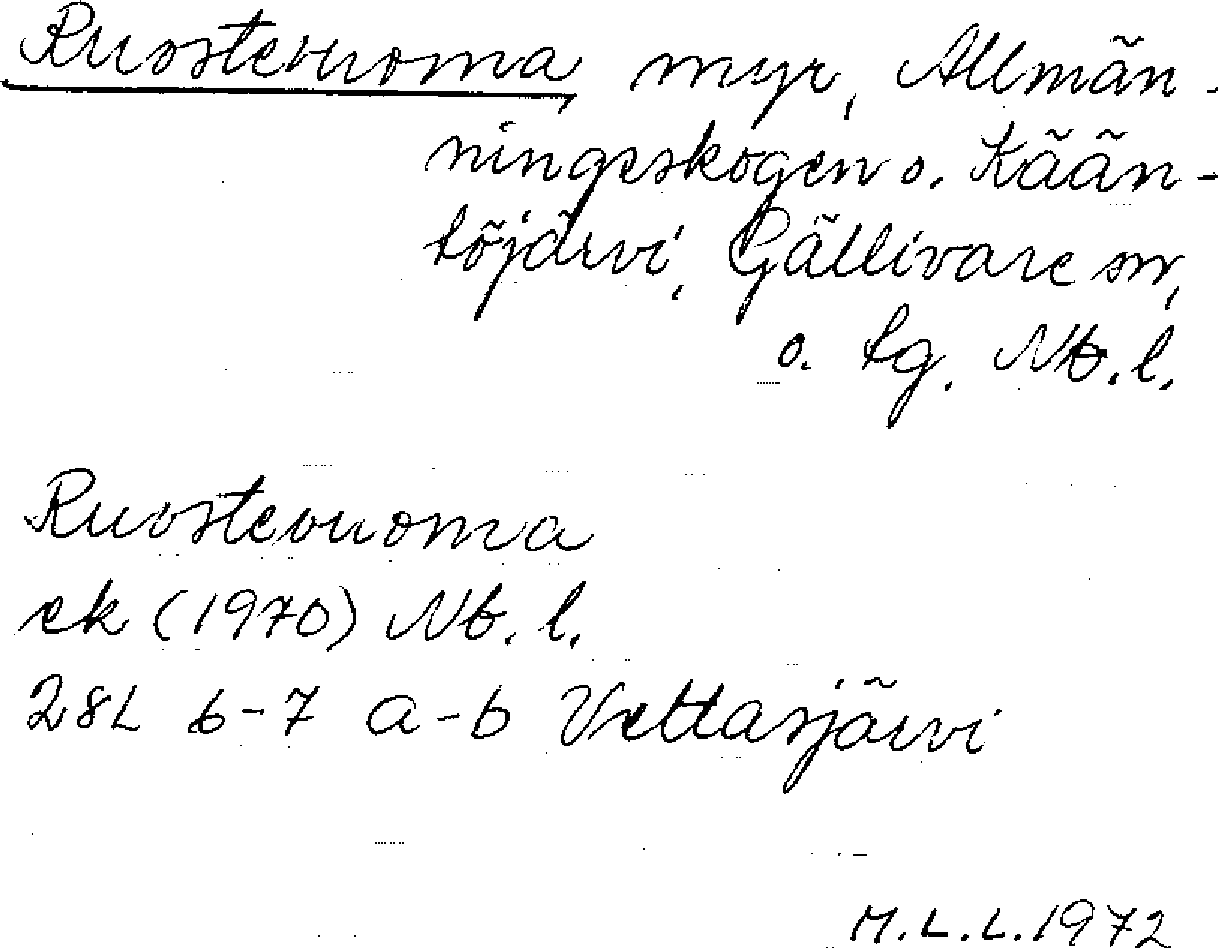 Ruostevuoma, myr, Allmän-
ningsskogen o. Kään-
töjärvi, Gällivare sn,
o. tg. Nb. l.
Ruostevuoma
ek (1970) Nb. l.
28L 6-7 a-b Vettasjärvi
M.L.L. 1972